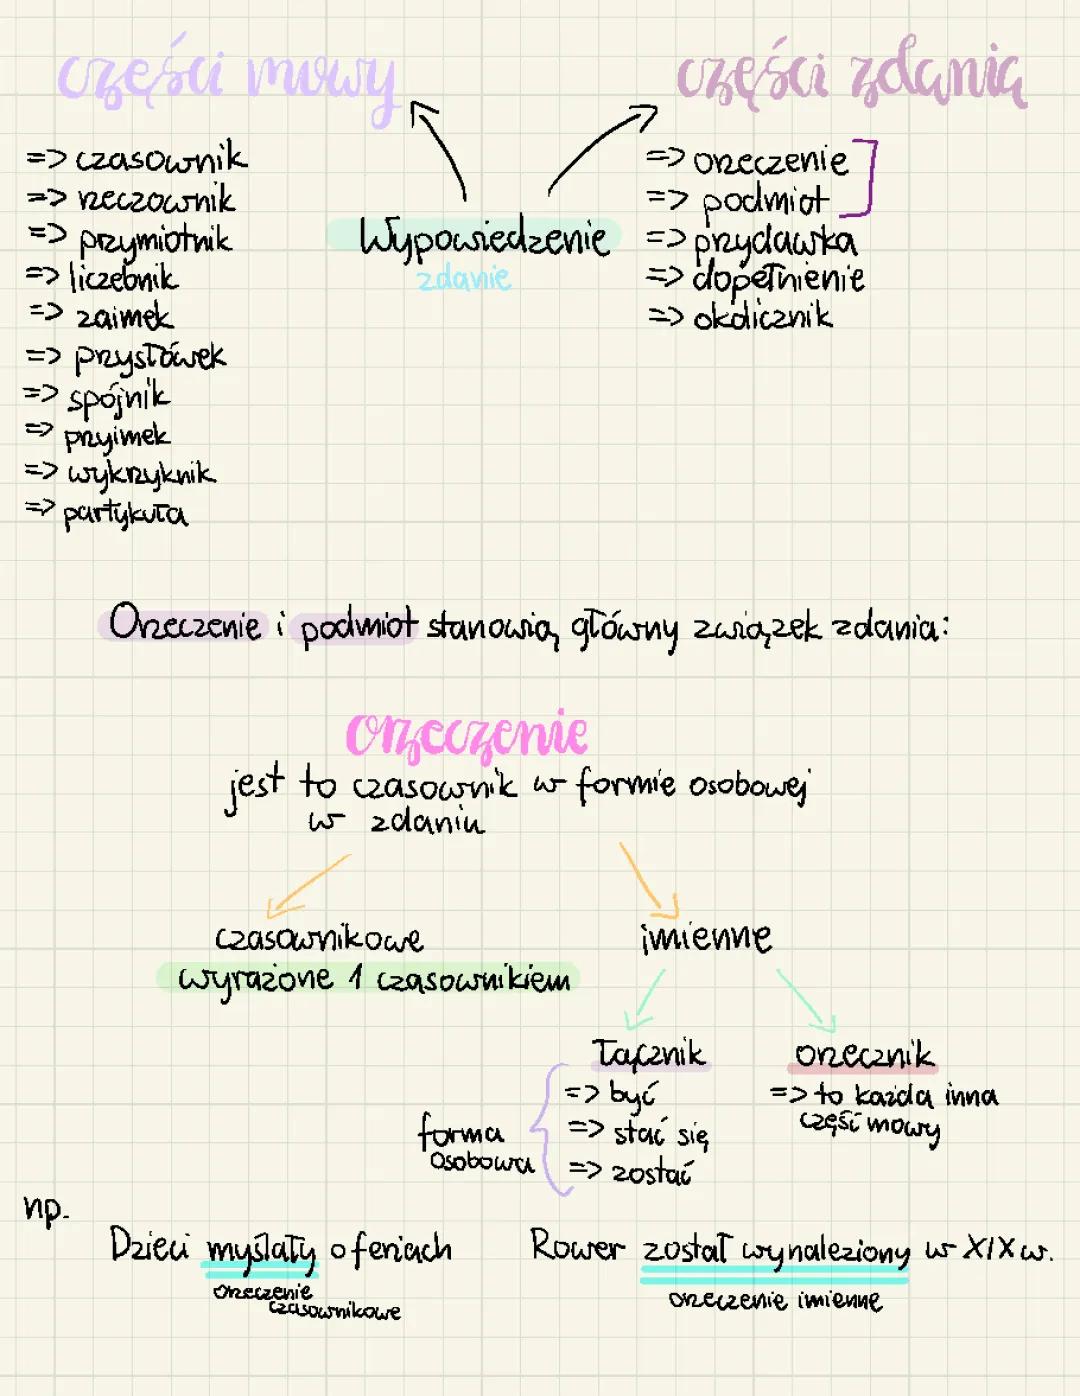 części mowy
=> czasownik
=> rzeczownik
=> przymiotnik
=> liczebnik
=> zaimek
=> przysłówek
=> spójnik
=> przyimek
=> wykrzyknik
=> partykuła
Wypowiedzenie
zdanie
części zdania
=> orzeczenie
=> podmiot
=> przydawka
=> dopełnienie
=> okolicznik
Orzeczenie i podmiot stanowią główny związek zdania:
orzeczenie
jest to czasownik w formie osobowej
w zdaniu
czasownikowe
wyrażone 1 czasownikiem
imienne
łącznik
=> być
=> stać się
=> zostać
forma
osobowa
orzecznik
=> to każda inna
część mowy
np.
Dzieci myślały o feriach
orzeczenie
czasownikowe
Rower został wynaleziony w XIX w.
orzeczenie imienne